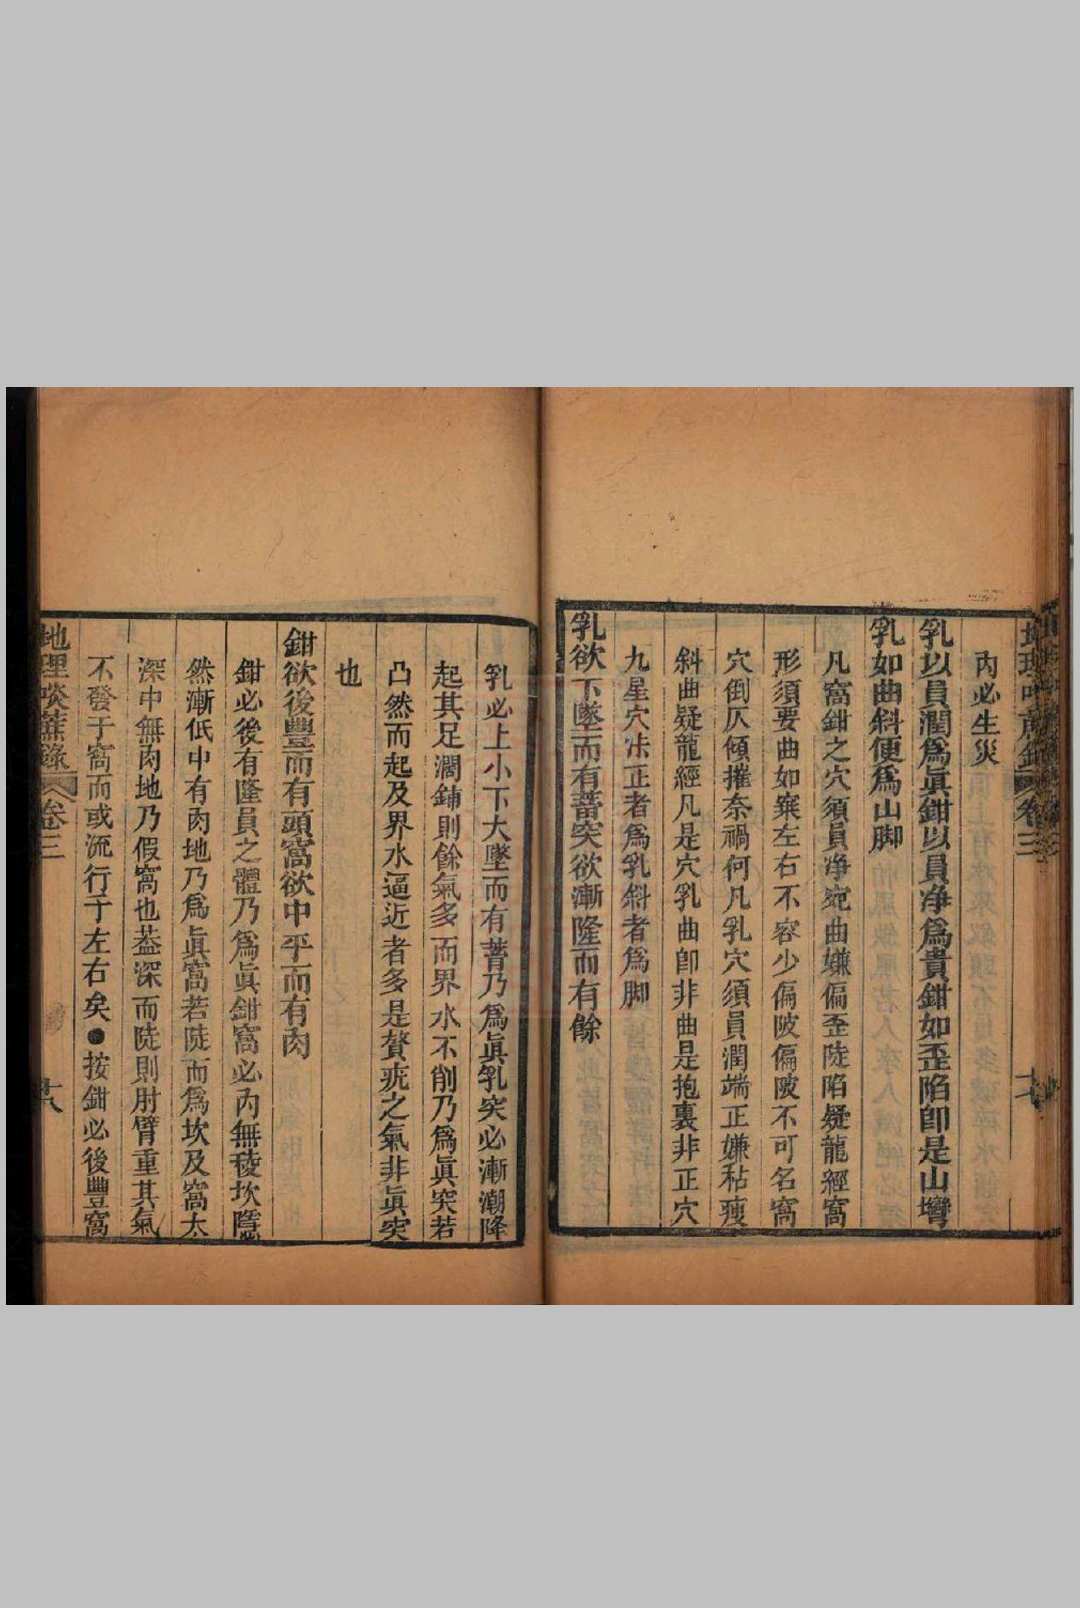 丙必生災
乳以員潤爲眞鉗以員净爲貴鉗如歪陷卽是山彎
乳如曲斜便爲山脚
凡窩鉗之穴須員净宛曲嫌偏歪陡陷疑龍經窩
形須要曲如窠左右不容少偏陂偏陂不可名窩
穴倒仄傾摧奈禍何凡乳穴須員潤端正嫌粘瘦
斜曲疑龍經凡是穴乳曲卽非曲是抱裏非正穴
九星穴法正者爲乳斜者爲脚
乳欲下墜而有蓄突欲漸隆而有餘
乳必上小下大墜而有蓄乃爲眞乳突必漸潮降
起其足濶鋪則餘氣多而界水不削乃爲眞突若
凸然而起及界水逼近者多是贅疣之氣非眞突
也
鉗欲後豐而有頭窩欲中平而有肉
鉗必後有隆員之體乃爲眞鉗窩必內無稜坎隱
然漸低中有肉地乃爲眞窩若陡而爲坎及窩太
深中無肉地乃假窩也葢深而陡則肘臂重其氣
不發于窩而或流行于左右矣●按鉗必後豐窩
地理啖蔗錄 卷三 十八